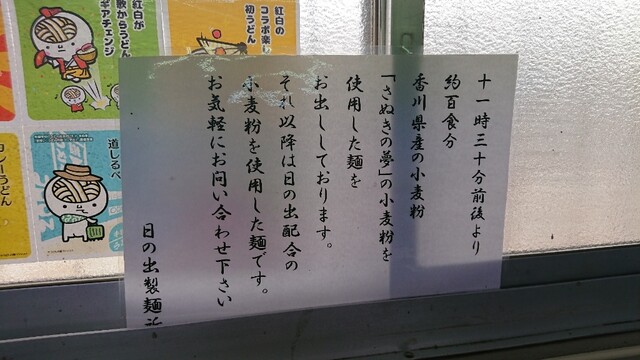 十一時三十分前後より
約百食分
香川県産の小麦粉
「さぬきの夢」の小麦粉を
使用した麺を
お出ししております。
それ以降は日の出配合の
小麦粉を使用した麺です。
お気軽にお問い合わせ下さい
日の出製麺所
紅白の
コラボ楽し
初うどん
紅白が
歌からうどん
ギアチェンジ
道しるべ
カレーうどん